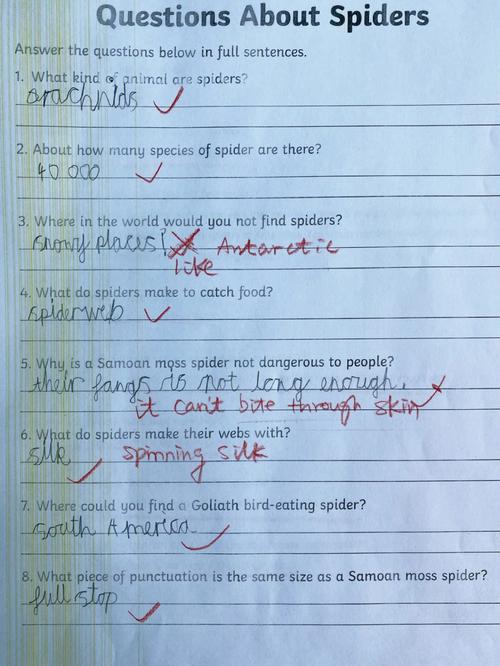 Questions About Spiders
Answer the questions below in full sentences.
1. What kind of animal are spiders?
arachnids
2. About how many species of spider are there?
40 000
3. Where in the world would you not find spiders?
snowy places! Antarctic
like
4. What do spiders make to catch food?
spiderweb
5. Why is a Samoan moss spider not dangerous to people?
their fangs is not long enough.
it can't bite through skin
6. What do spiders make their webs with?
silk spinning silk
7. Where could you find a Goliath bird-eating spider?
south America
8. What piece of punctuation is the same size as a Samoan moss spider?
full stop